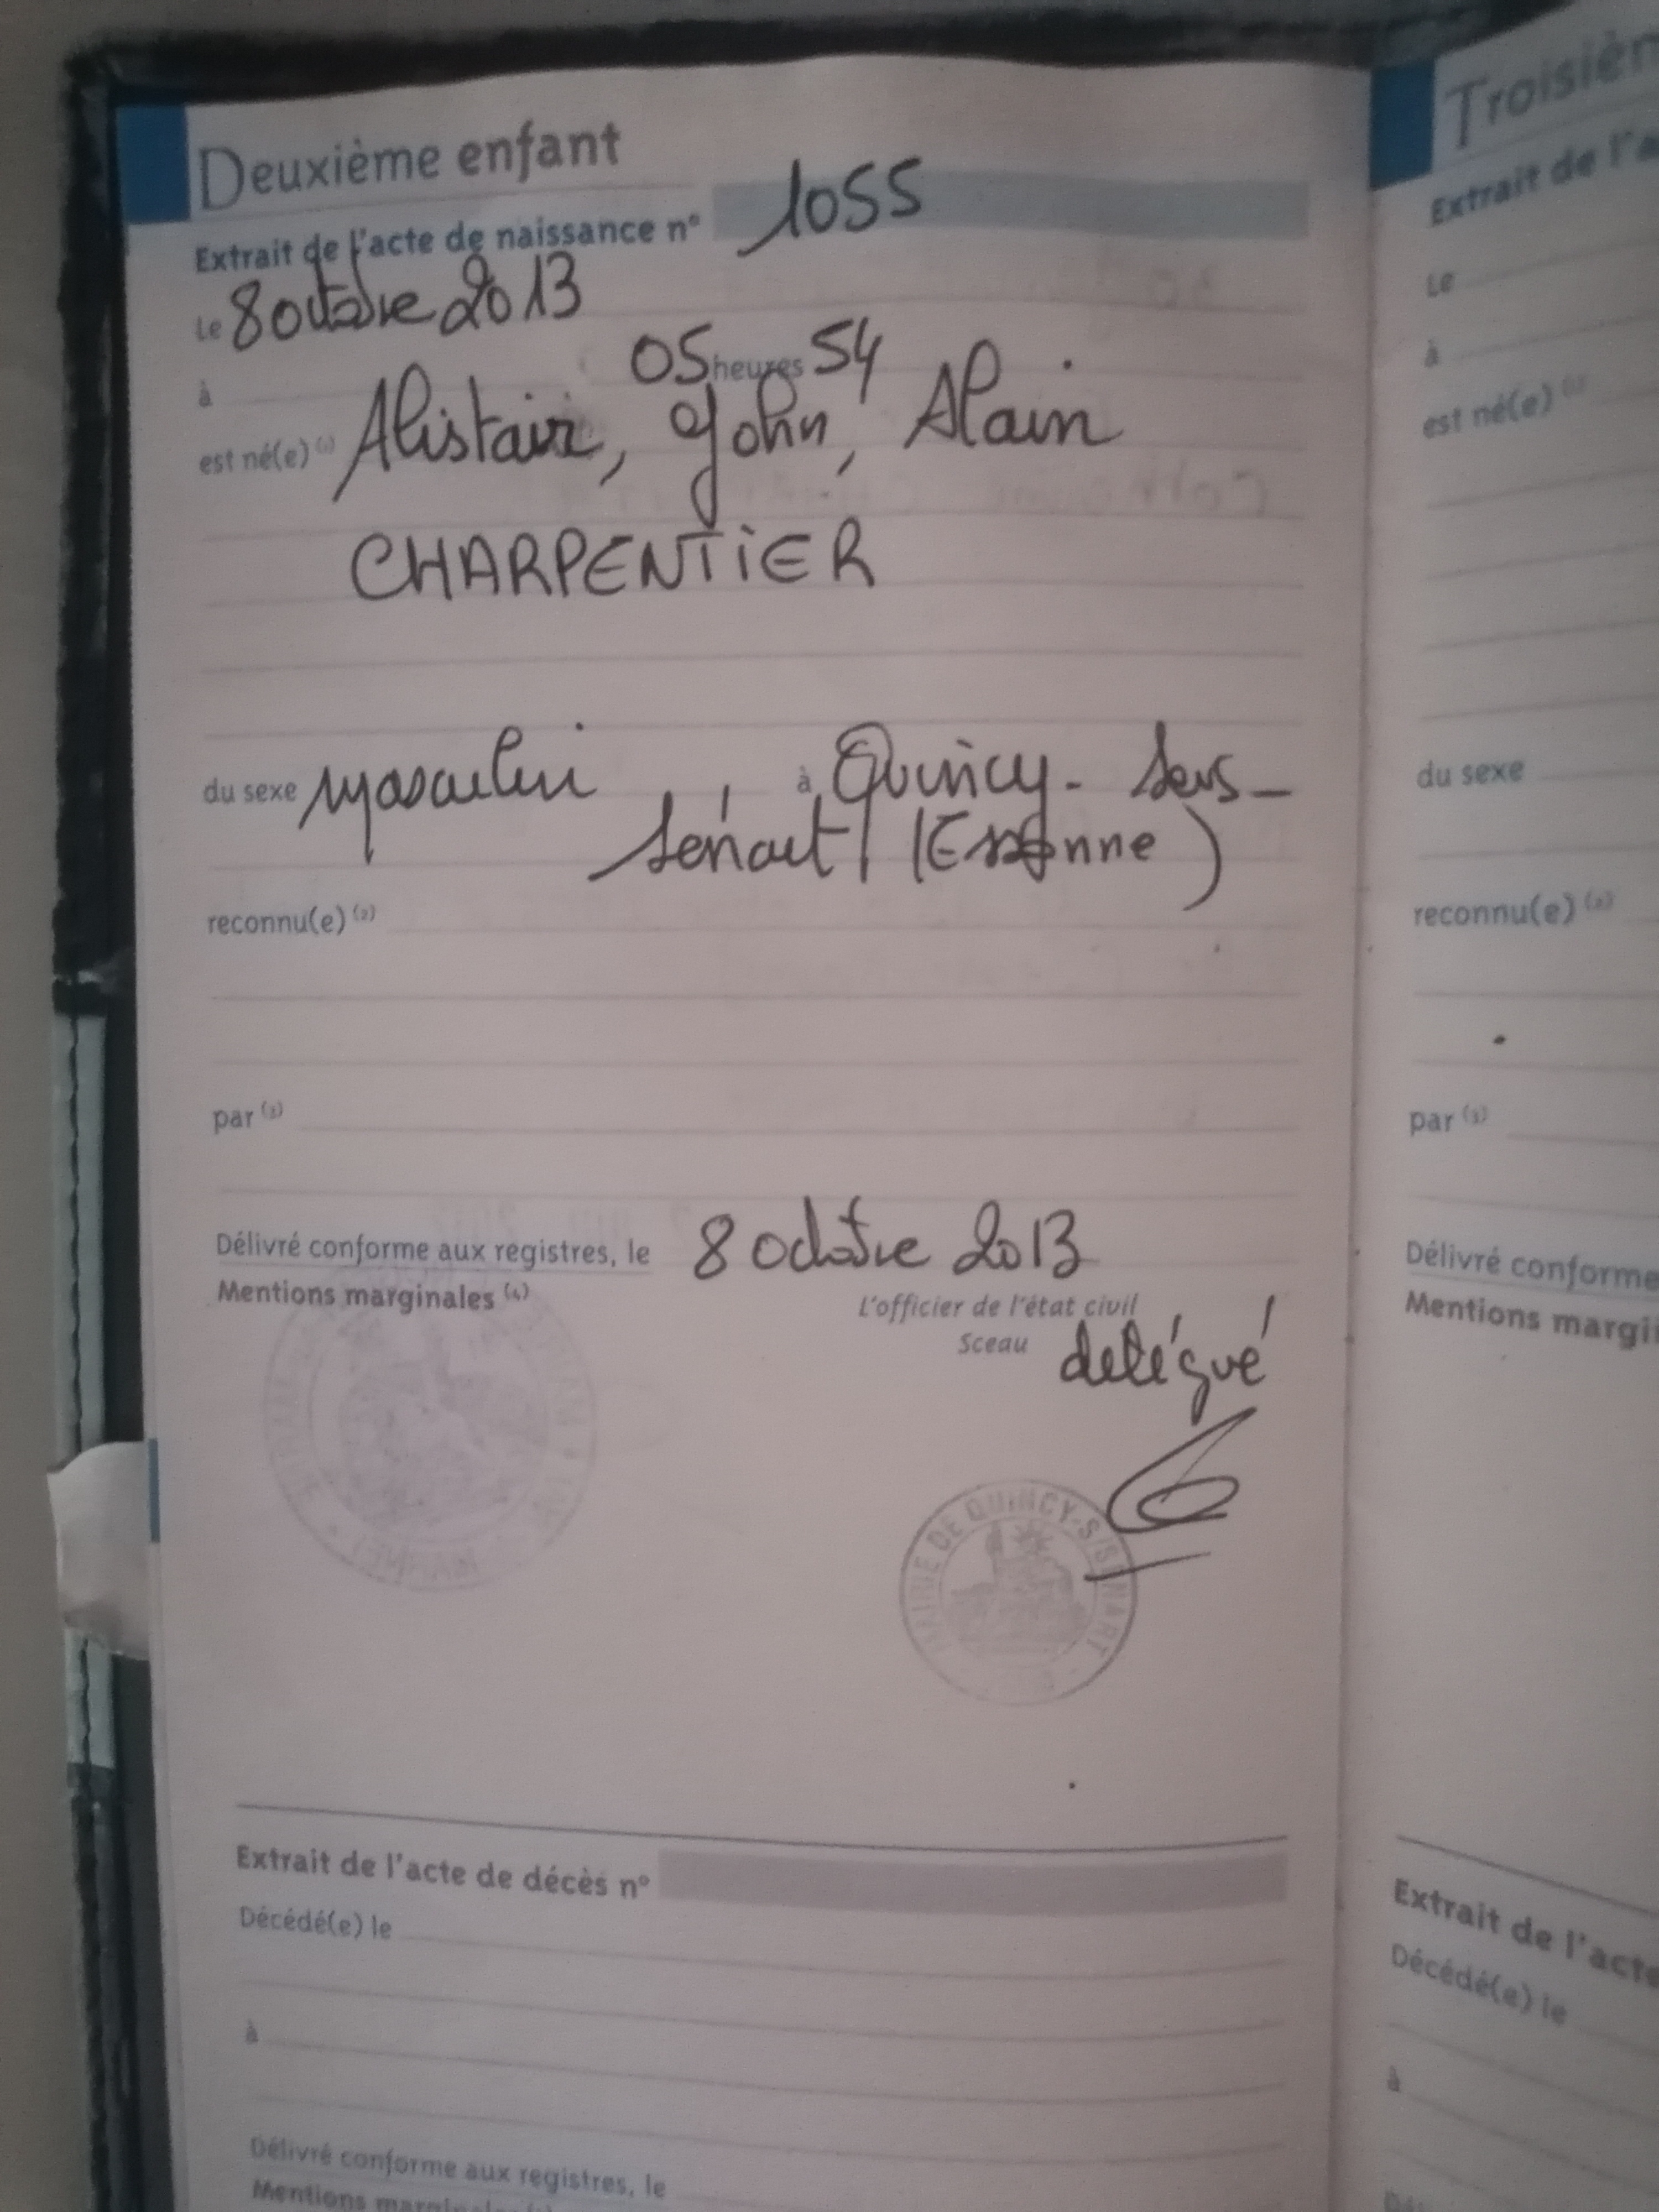 Deuxième enfant
Extrait de l'acte de naissance n° 1055
Le 8 octobre 2013
à 05 heures 54
est né(e) (1) Alistair, John, Alain
CHARPENTIER
du sexe masculin, à Quincy-sous-
Sénart (Essonne)
reconnu(e) (2)
par (3)
Délivré conforme aux registres, le 8 octobre 2013
Mentions marginales (4)
L'officier de l'état civil
Sceau délégué
MAIRIE DE QUINCY-S/SÉNART
Extrait de l'acte de décès n°
Décédé(e) le
à
Délivré conforme aux registres, le
Mentions marginales
Troisièm
Extrait de l'a
Le
à
est né(e) (1)
du sexe
reconnu(e) (2)
par (3)
Délivré conforme
Mentions margi
Extrait de l'acte
Décédé(e) le
à
Dé